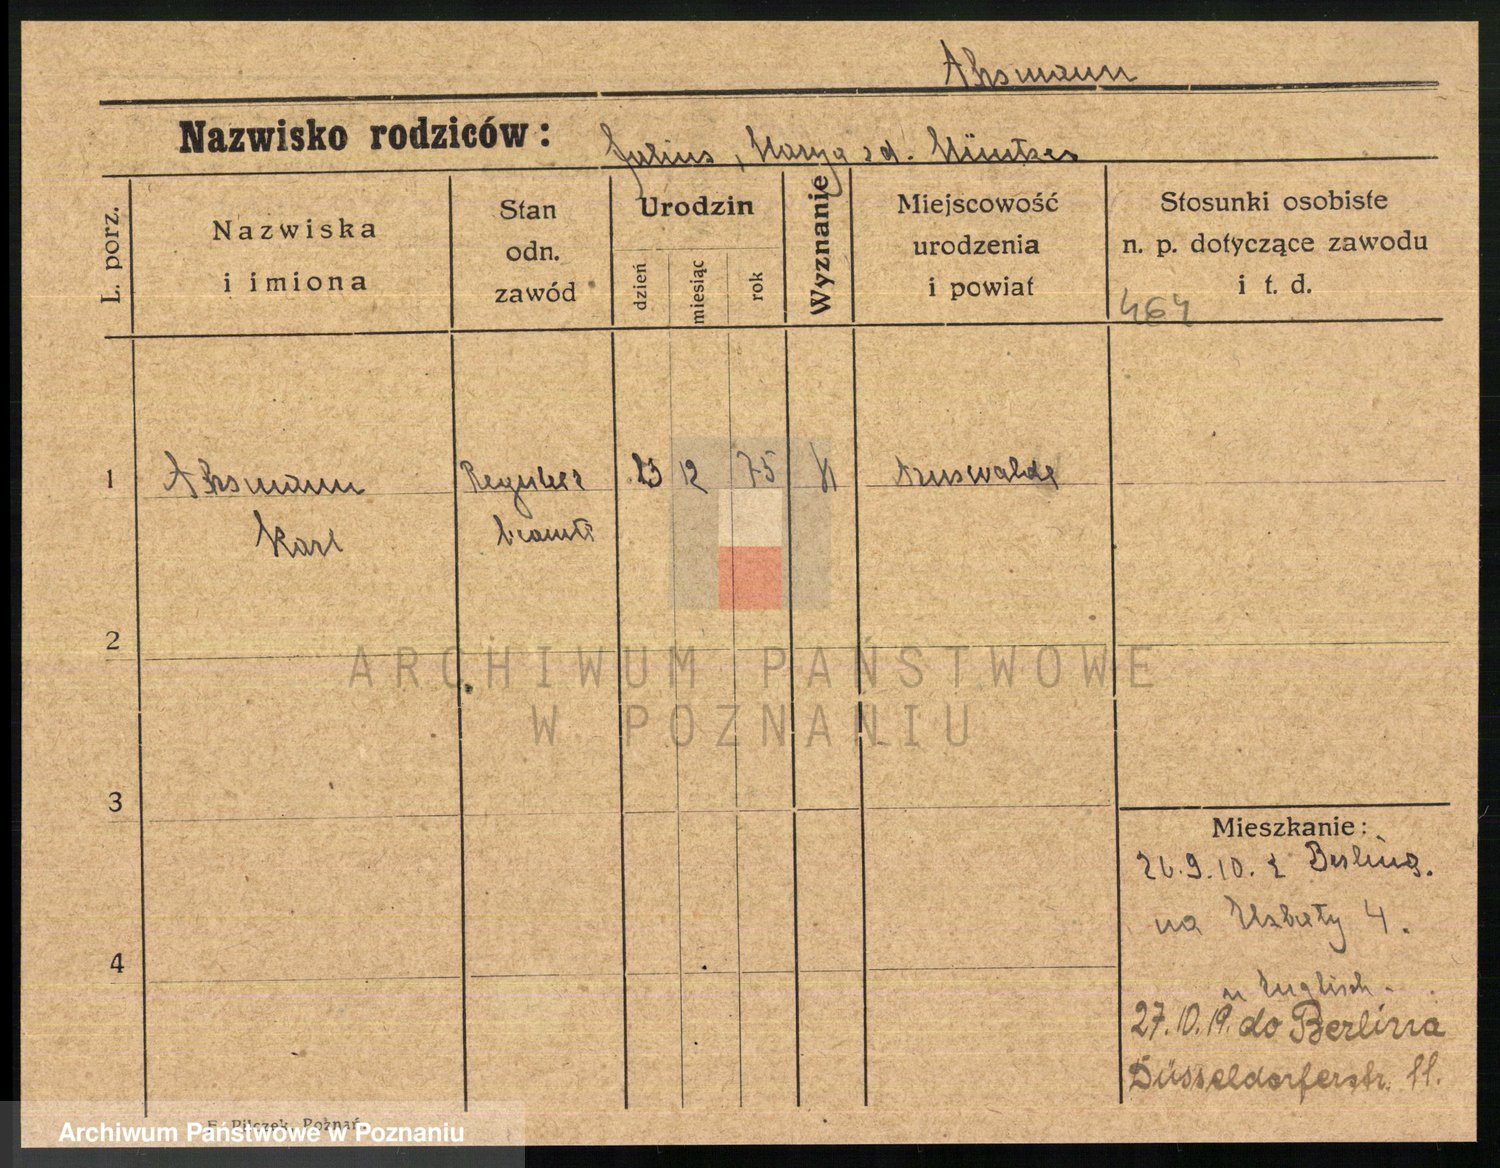 Ahsmann
Nazwisko rodziców: Julius, Marya zd.
L. porz.
Nazwiska
i imiona
Stan
odn.
zawód
Urodzin
dzień
miesiąc
rok
Wyznanie
Miejscowość
urodzenia
i powiat
Stosunki osobiste
n. p. dotyczące zawodu
i t. d.
464
1
Ahsmann
Karl
23 12 75
Arnswalde
2
3
4
Mieszkanie:
26.9.10. z Berlina.
na 4.
u
27.10.19. do Berlina
Düsseldorferstr. 11.
ARCHIWUM PAŃSTWOWE
W POZNANIU
F. Pilczek, Poznań.
Archiwum Państwowe w Poznaniu